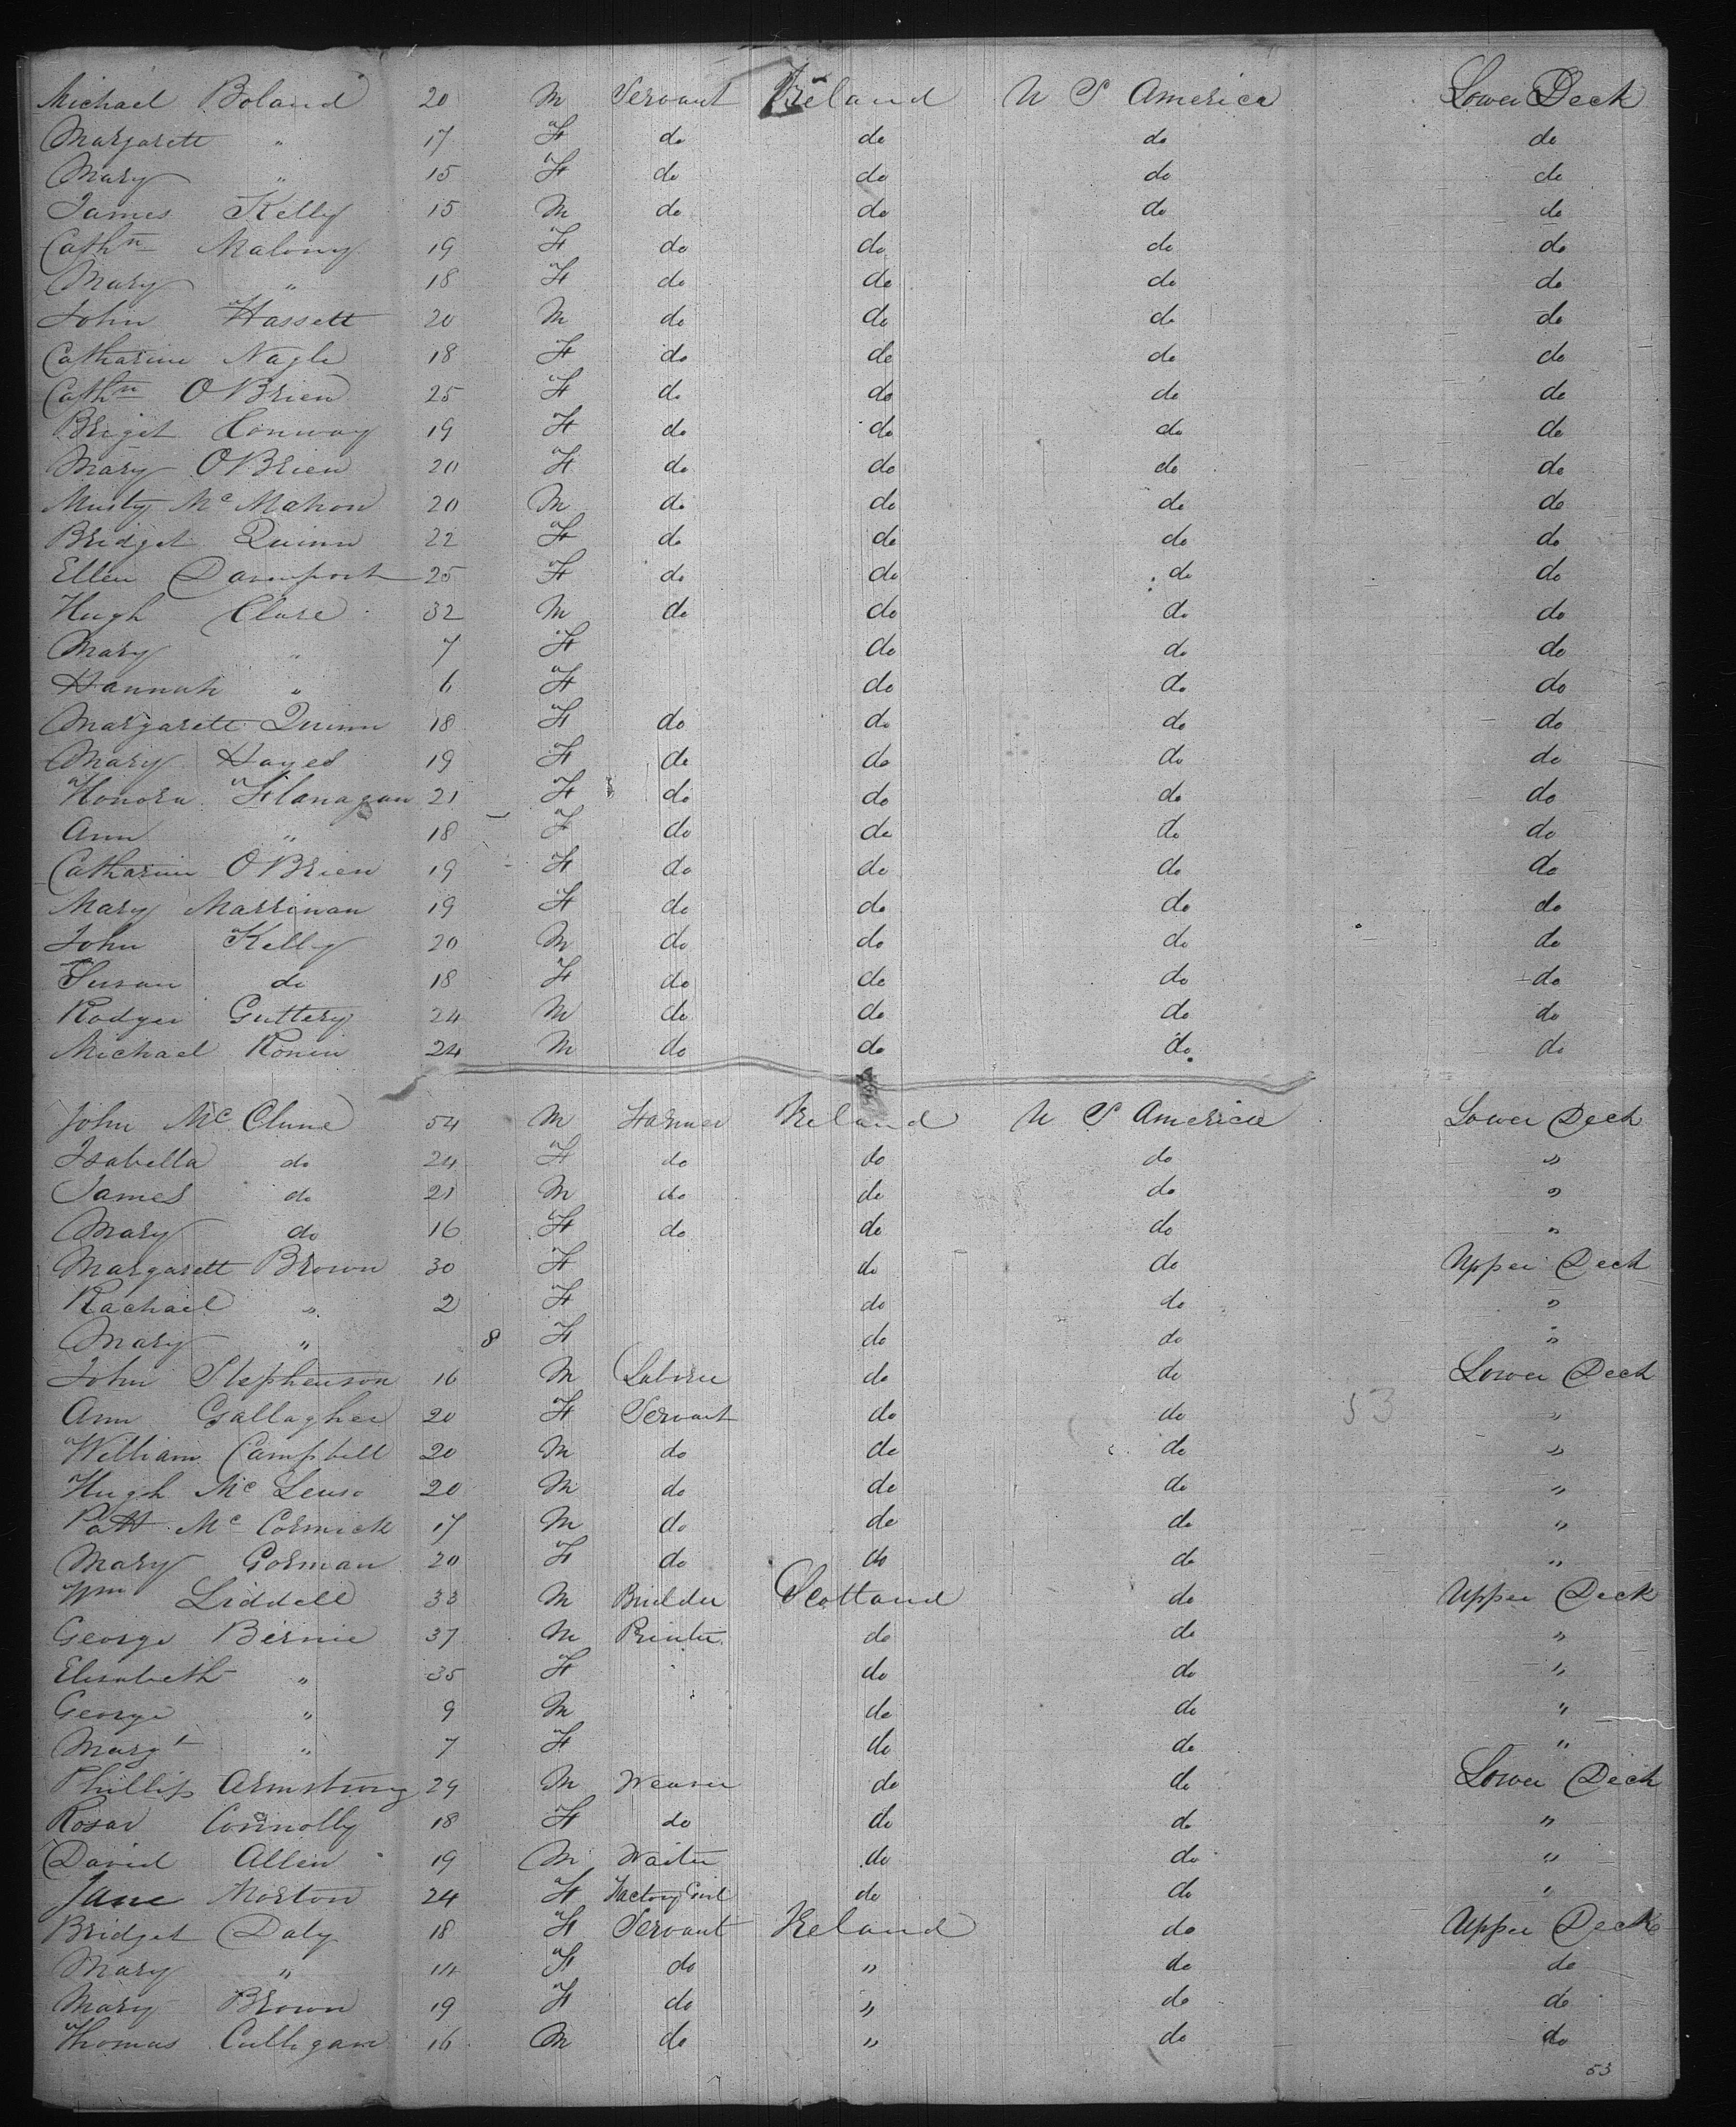 Michael Boland 20 M Servant Ireland U S America Lower Deck
Margarett " 17 F do do do do
Mary " 15 F do do do do
James Kelly 15 M do do do do
Cathn Malony 19 F do do do do
Mary " 18 F do do do do
John Hassett 20 M do do do do
Catharine Nagle 18 F do do do do
Cathn O Brien 25 F do do do do
Briget Conway 19 F do do do do
Mary O Brien 20 F do do do do
Musty Mc Mahon 20 M do do do do
Bridget Quinn 22 F do do do do
Ellen Davenport 25 F do do do do
Hugh Clare 32 M do do do do
Mary " 7 F do do do
Hannah " 6 F do do do
Margarett Quinn 18 F do do do do
Mary Hayes 19 F do do do do
Honora Flanagan 21 F do do do do
Ann " 18 F do do do do
Catharine O Brien 19 F do do do do
Mary Marrinan 19 F do do do do
John Kelly 20 M do do do do
Susan do 18 F do do do do
Rodger Guttery 24 M do do do do
Michael Ronin 24 M do do do do
John Mc Clune 54 M Farmer Ireland U S America Lower Deck
Isabella do 24 F do do do "
James do 21 M do do do "
Mary do 16 F do do do "
Margarett Brown 30 F do do Upper Deck
Rachael " 2 F do do "
Mary " 8 F do do "
John Stephenson 16 M Laborer do do Lower Deck
Ann Gallagher 20 F Servant do do 53 "
William Campbell 20 M do do do "
Hugh Mc 20 M do do do "
Patt Mc Cormick 17 M do do do "
Mary Gorman 20 F do do do "
Wm Liddell 33 M Builder Scotland do Upper Deck
George Bernie 37 M Printer do do "
Elisabeth " 35 F do do "
George " 9 M do do "
Margt " 7 F do do "
Phillip Armstrong 29 M Weaver do do Lower Deck
Rosar Connolly 18 F do do do "
David Allen 19 M Waiter do do "
Jane Morton 24 F Factory Girl do do "
Bridget Daly 18 F Servant Ireland do Upper Deck
Mary " 14 F do " do do
Mary Brown 19 F do " do do
Thomas Culligan 16 M do " do do
53